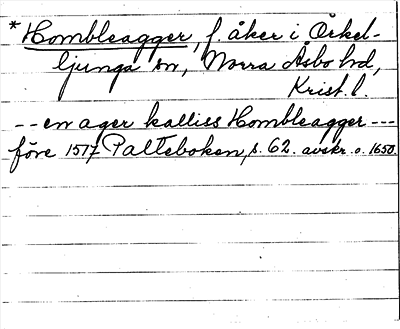 * Hombleagger, f. åker i Örkel-
ljunga sn, Norra Åsbo hd,
Krist. l.
-- en ager kalliss Hombleagger ---
före 1517 Palteboken, s. 62. avskr. o. 1650.